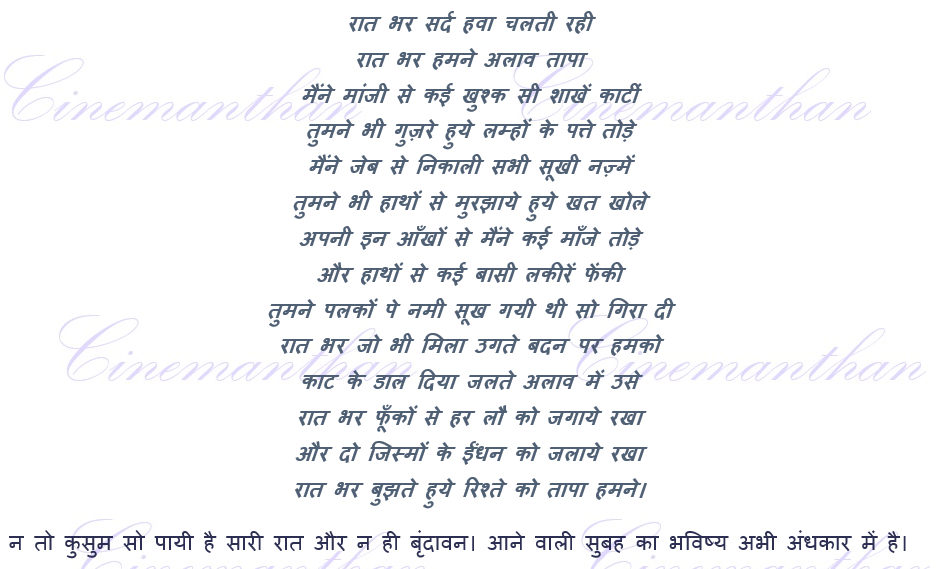 रात भर सर्द हवा चलती रही
रात भर हमने अलाव तापा
मैंने मांजी से कई खुश्क सी शाखें काटीं
तुमने भी गुज़रे हुये लम्हों के पत्ते तोड़े
मैंने जेब से निकाली सभी सूखी नज़्में
तुमने भी हाथों से मुरझाये हुये खत खोले
अपनी इन आँखों से मैंने कई माँजे तोड़े
और हाथों से कई बासी लकीरें फेंकी
तुमने पलकों पे नमी सूख गयी थी सो गिरा दी
रात भर जो भी मिला उगते बदन पर हमको
काट के डाल दिया जलते अलाव में उसे
रात भर फूँकों से हर लौ को जगाये रखा
और दो जिस्मों के ईंधन को जलाये रखा
रात भर बुझते हुये रिश्ते को तापा हमने।
न तो कुसुम सो पायी है सारी रात और न ही बृंदावन। आने वाली सुबह का भविष्य अभी अंधकार में है।
Cinemanthan
Cinemanthan
Cinemanthan
Cinemanthan